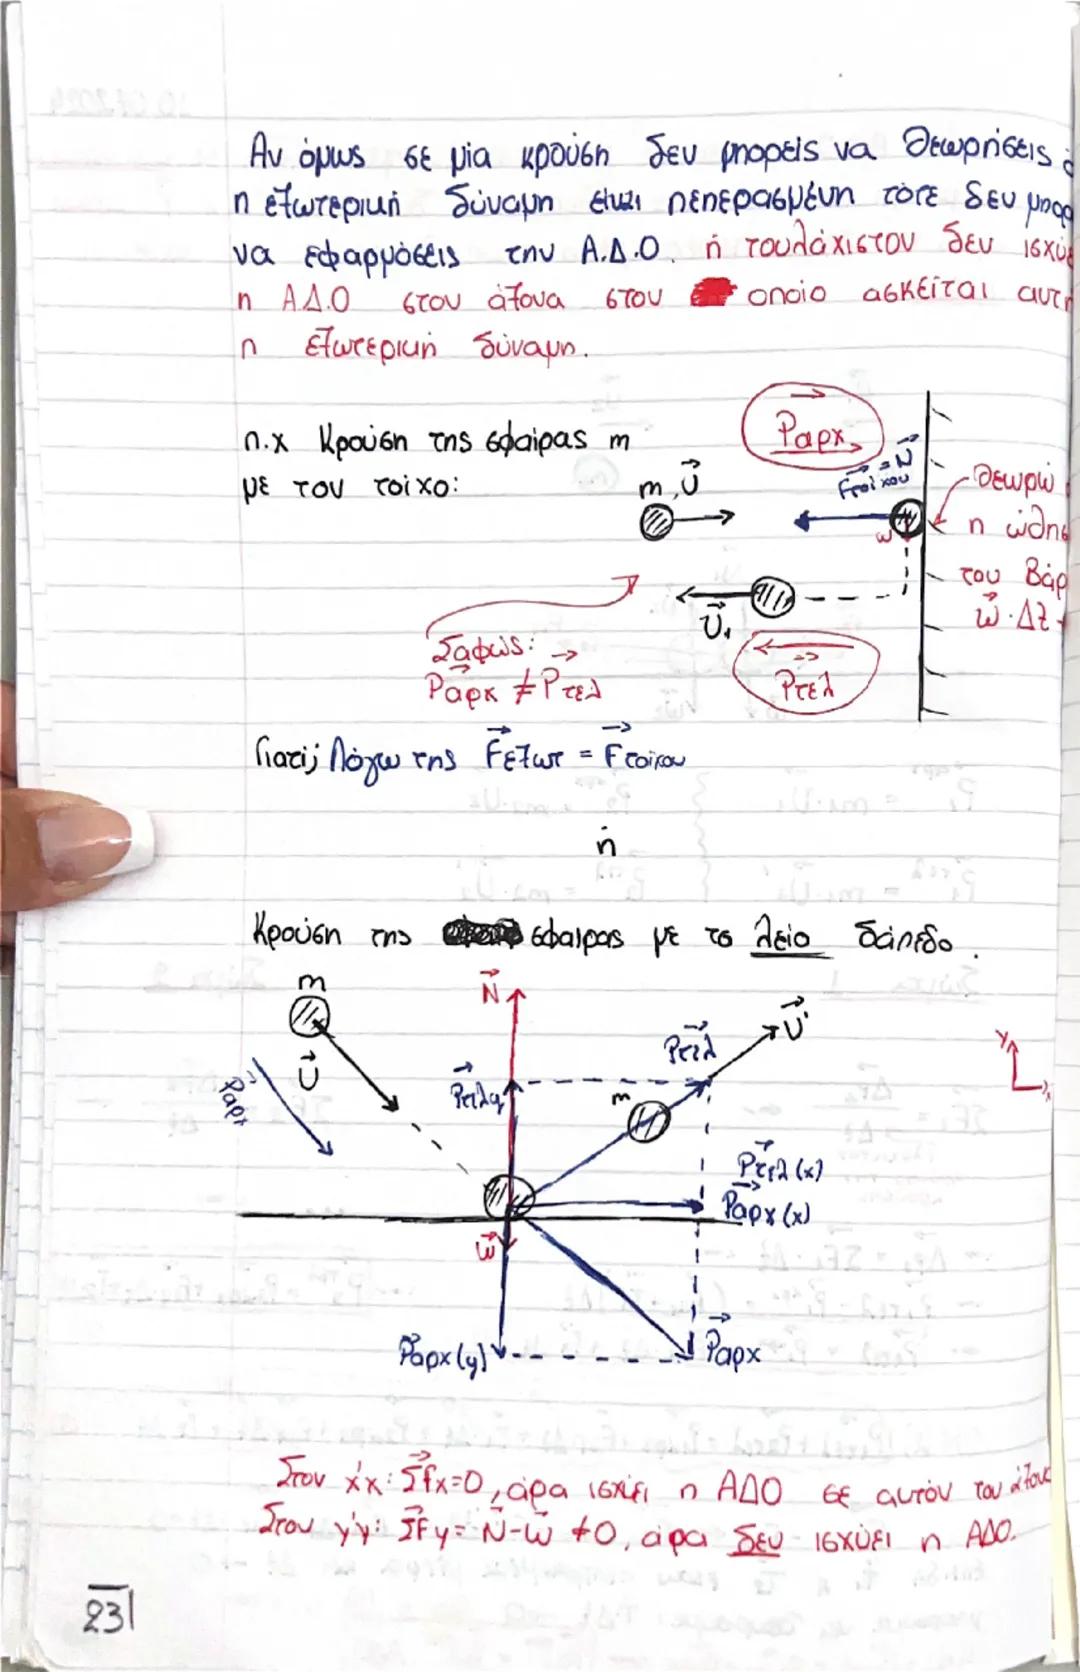 Αν όμως σε μία κρούση δεν μπορείς να θεωρήσεις
η εξωτερική δύναμη είναι πεπερασμένη τότε δεν
να εφαρμόσεις την Α.Δ.Ο. ή τουλάχιστον δεν
η Α.Δ.Ο στον άξονα στον οποίο ασκείται
η εξωτερική δύναμη.
π.χ Κρούση της σφαίρας m
με τον τοίχο:
Pαρχ
m, υ
Fτοίχου = N
w
θεωρώ
η
του
w·Δt
υ₁
Pτελ
Σαφώς:
Pαρχ ≠ Pτελ
Γιατί; Λόγω της Fεξωτ = Fτοίχου
ή
Κρούση της σφαίρας με το λείο δάπεδο.
m
υ
Pαρχ
N
Pτελy
w
Pαρχ(y)
m
Pτελ
υ'
Pτελ(x)
Pαρχ(x)
Pαρχ
y
x
Στον x'x: Σfx=0, άρα ισχύει η ΑΔΟ σε αυτόν τον άξονα
Στον y'y: ΣFy= N-w ≠0, άρα δεν ισχύει η ΑΔΟ.
23